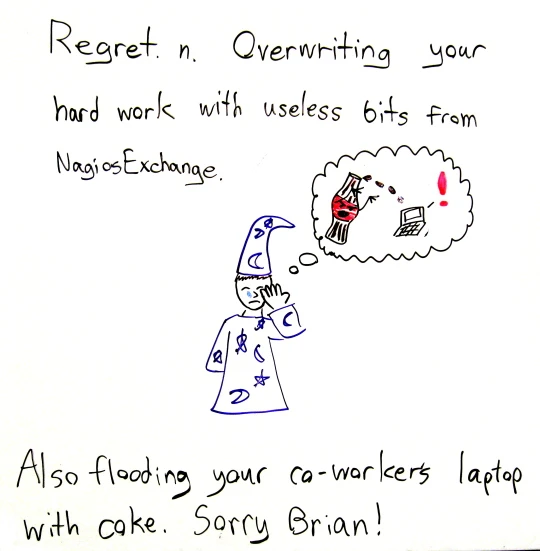 Regret. n. Overwriting your
hard work with useless bits from
NagiosExchange.
!
Also flooding your co-worker's laptop
with coke. Sorry Brian!